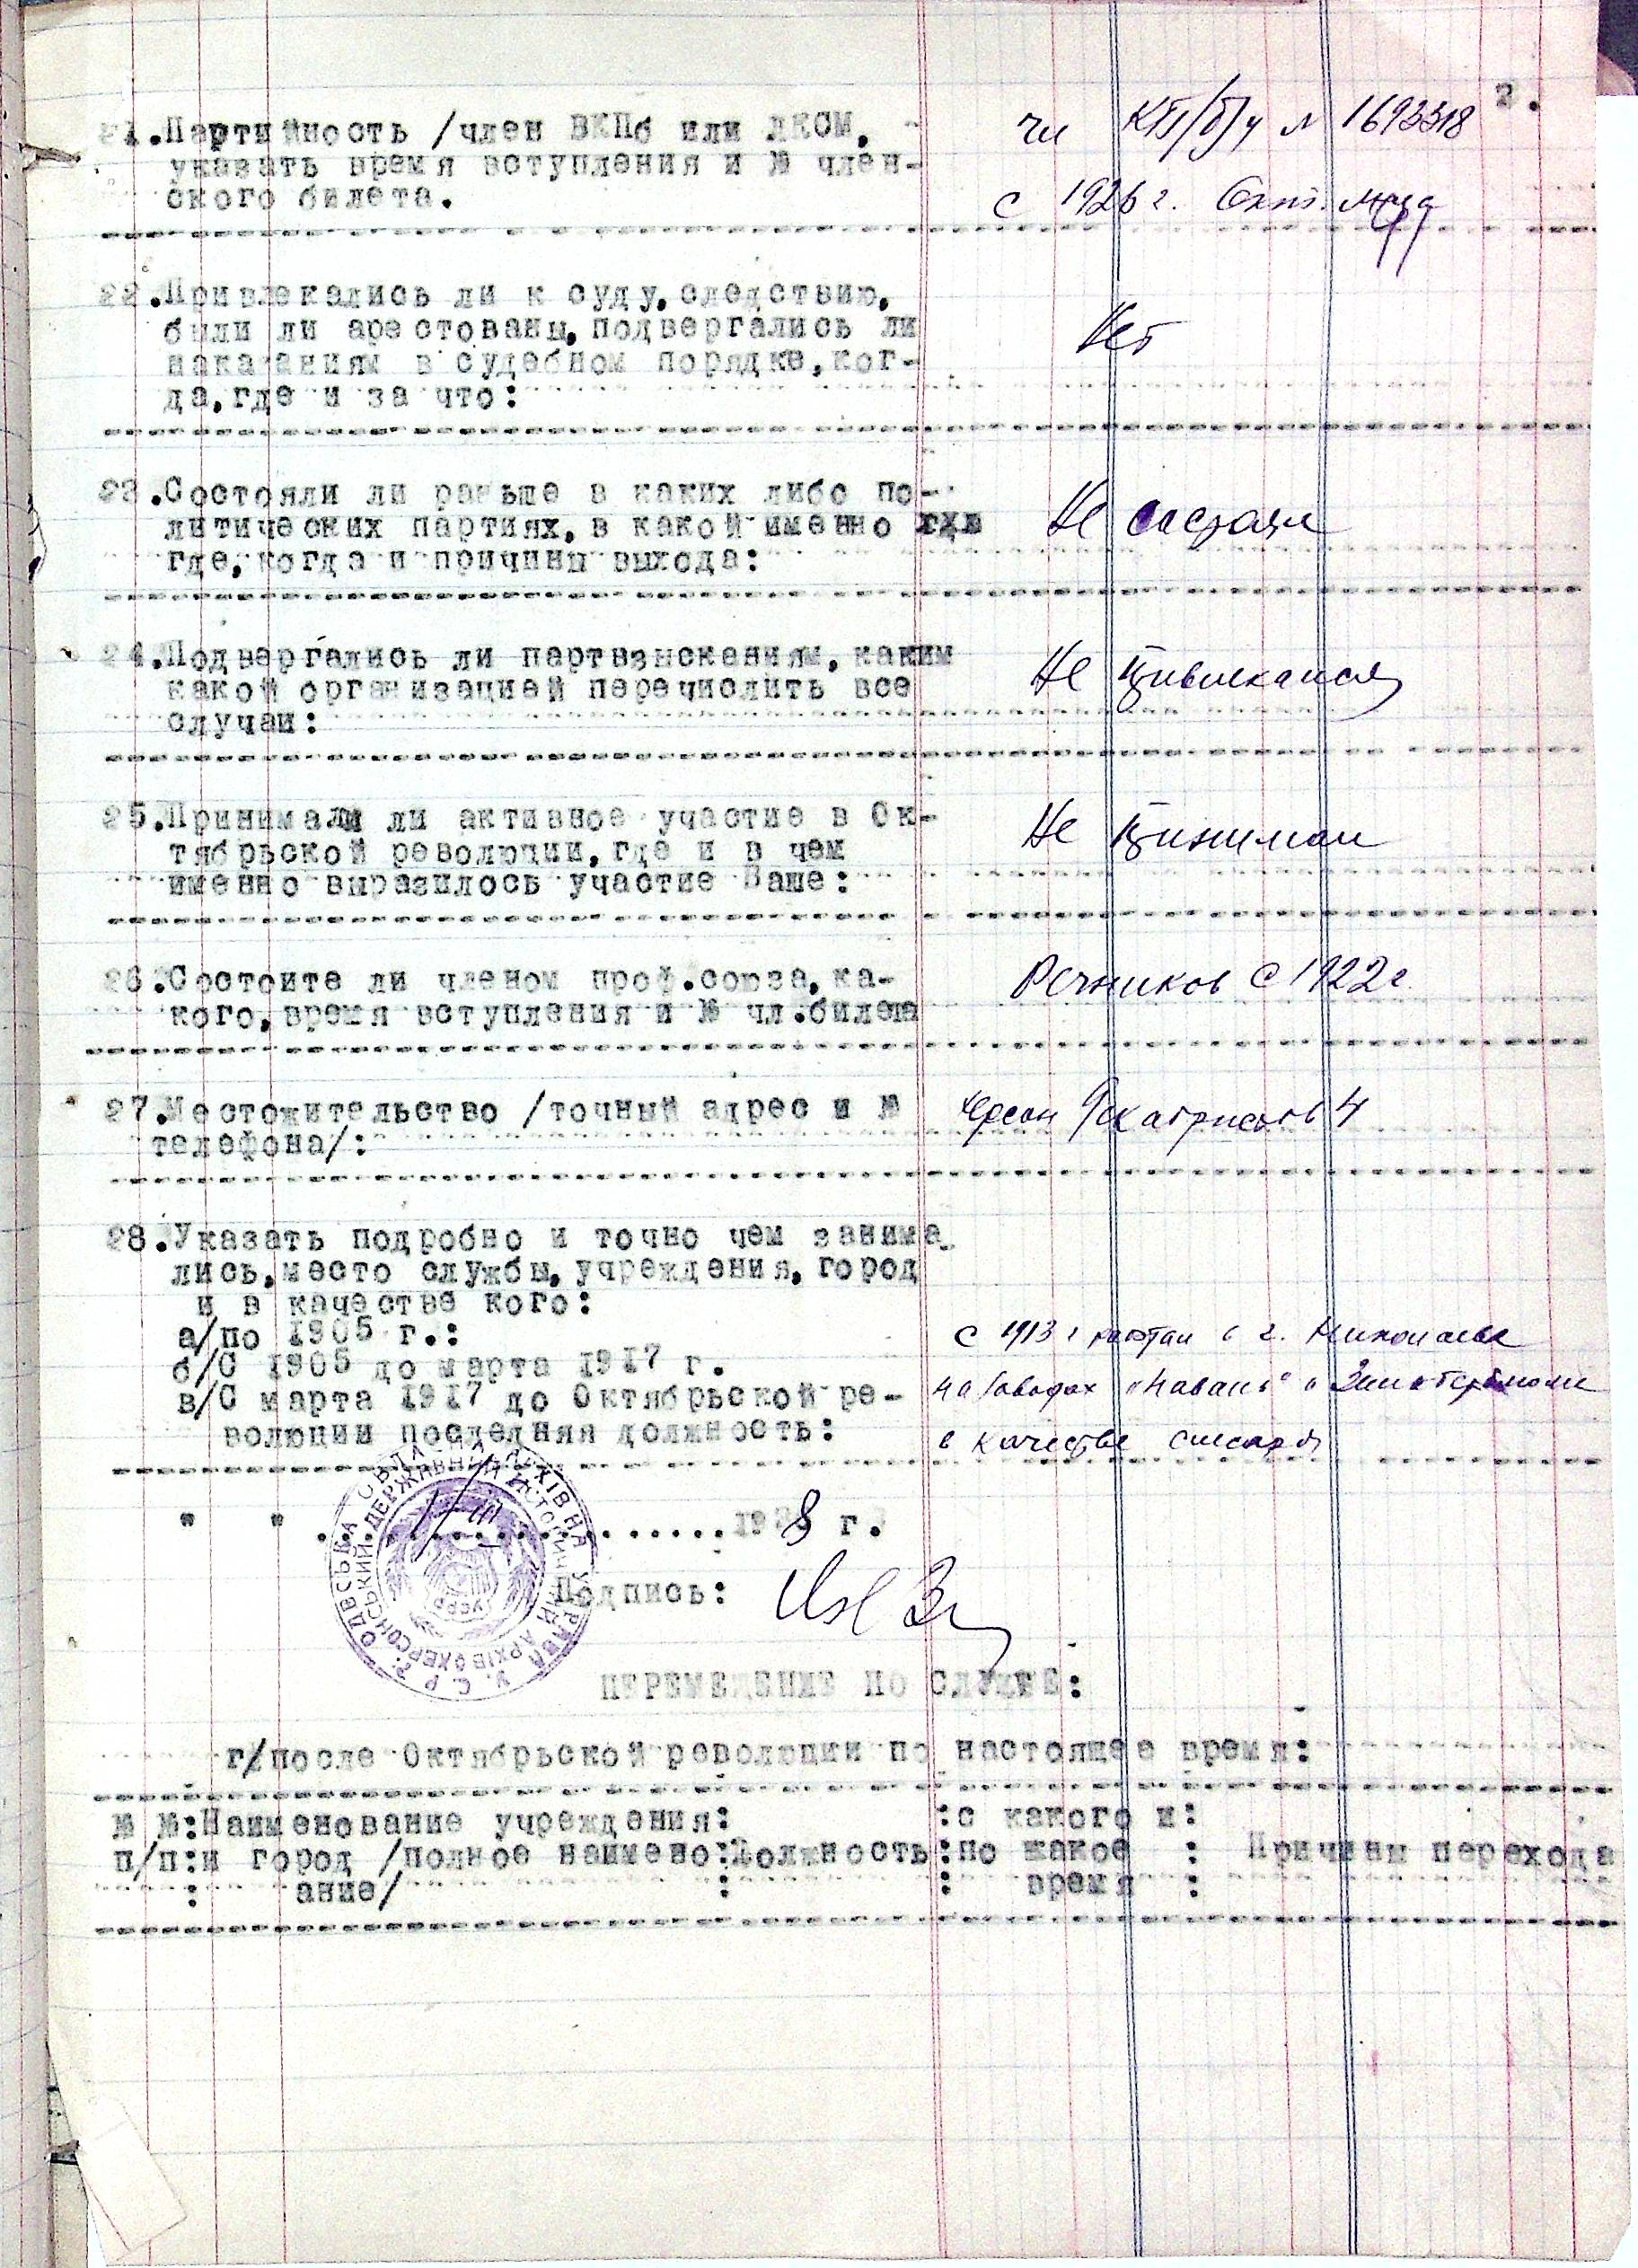 2.
21.Партийность /член ВКПб или ЛКСМ, чл КП/б/у № 1693318
указать время вступления и № член-
ского билета. с 1926 г. Окт. м-ца
22.Привлекались ли к суду, следствию,
были ли арестованы, подвергались ли Нет
наказаниям в судебном порядке, ког-
да, где и за что:
23.Состояли ли раньше в каких либо по-
литических партиях, в какой именно где Не состоял
где, когда и причины выхода:
24.Подвергались ли партвзысканиям, каким Не привлекался
какой организацией перечислить все
случаи:
25.Принимали ли активное участие в Ок- Не принимал
тябрьской революции, где и в чем
именно выразилось участие Ваше:
26.Состоите ли членом проф.союза, ка- Речников с 1922 г.
кого, время вступления и № чл.билета
27.Местожительство /точный адрес и № Херсон 4
телефона/:
28.Указать подробно и точно чем занима
лись, место службы, учреждения, город
и в качестве кого:
а/по 1905 г.: с 1913 г работал в г. Николаеве
б/С 1905 до марта 1917 г. на заводах „Наваль" и
в/С марта 1917 до Октябрьской ре-
волюции последняя должность: в качестве слесаря
" " 1/III 1938 г.
ОДЕСЬКА ОБЛАСНА АРХІВНА УПРАВА У.С.Р.Р.
ХЕРСОНСЬКИЙ ДЕРЖАВНИЙ ІСТОРИЧНИЙ АРХІВ
УСРР
Подпись:
ПЕРЕМЕЩЕНИЕ ПО СЛУЖБЕ:
г/после Октябрьской революции по настоящее время:
№ №:Наименование учреждения: :с какого и:
п/п:и город /полное наимено:Должность:по какое : Причины перехода
: ание/ : : время :